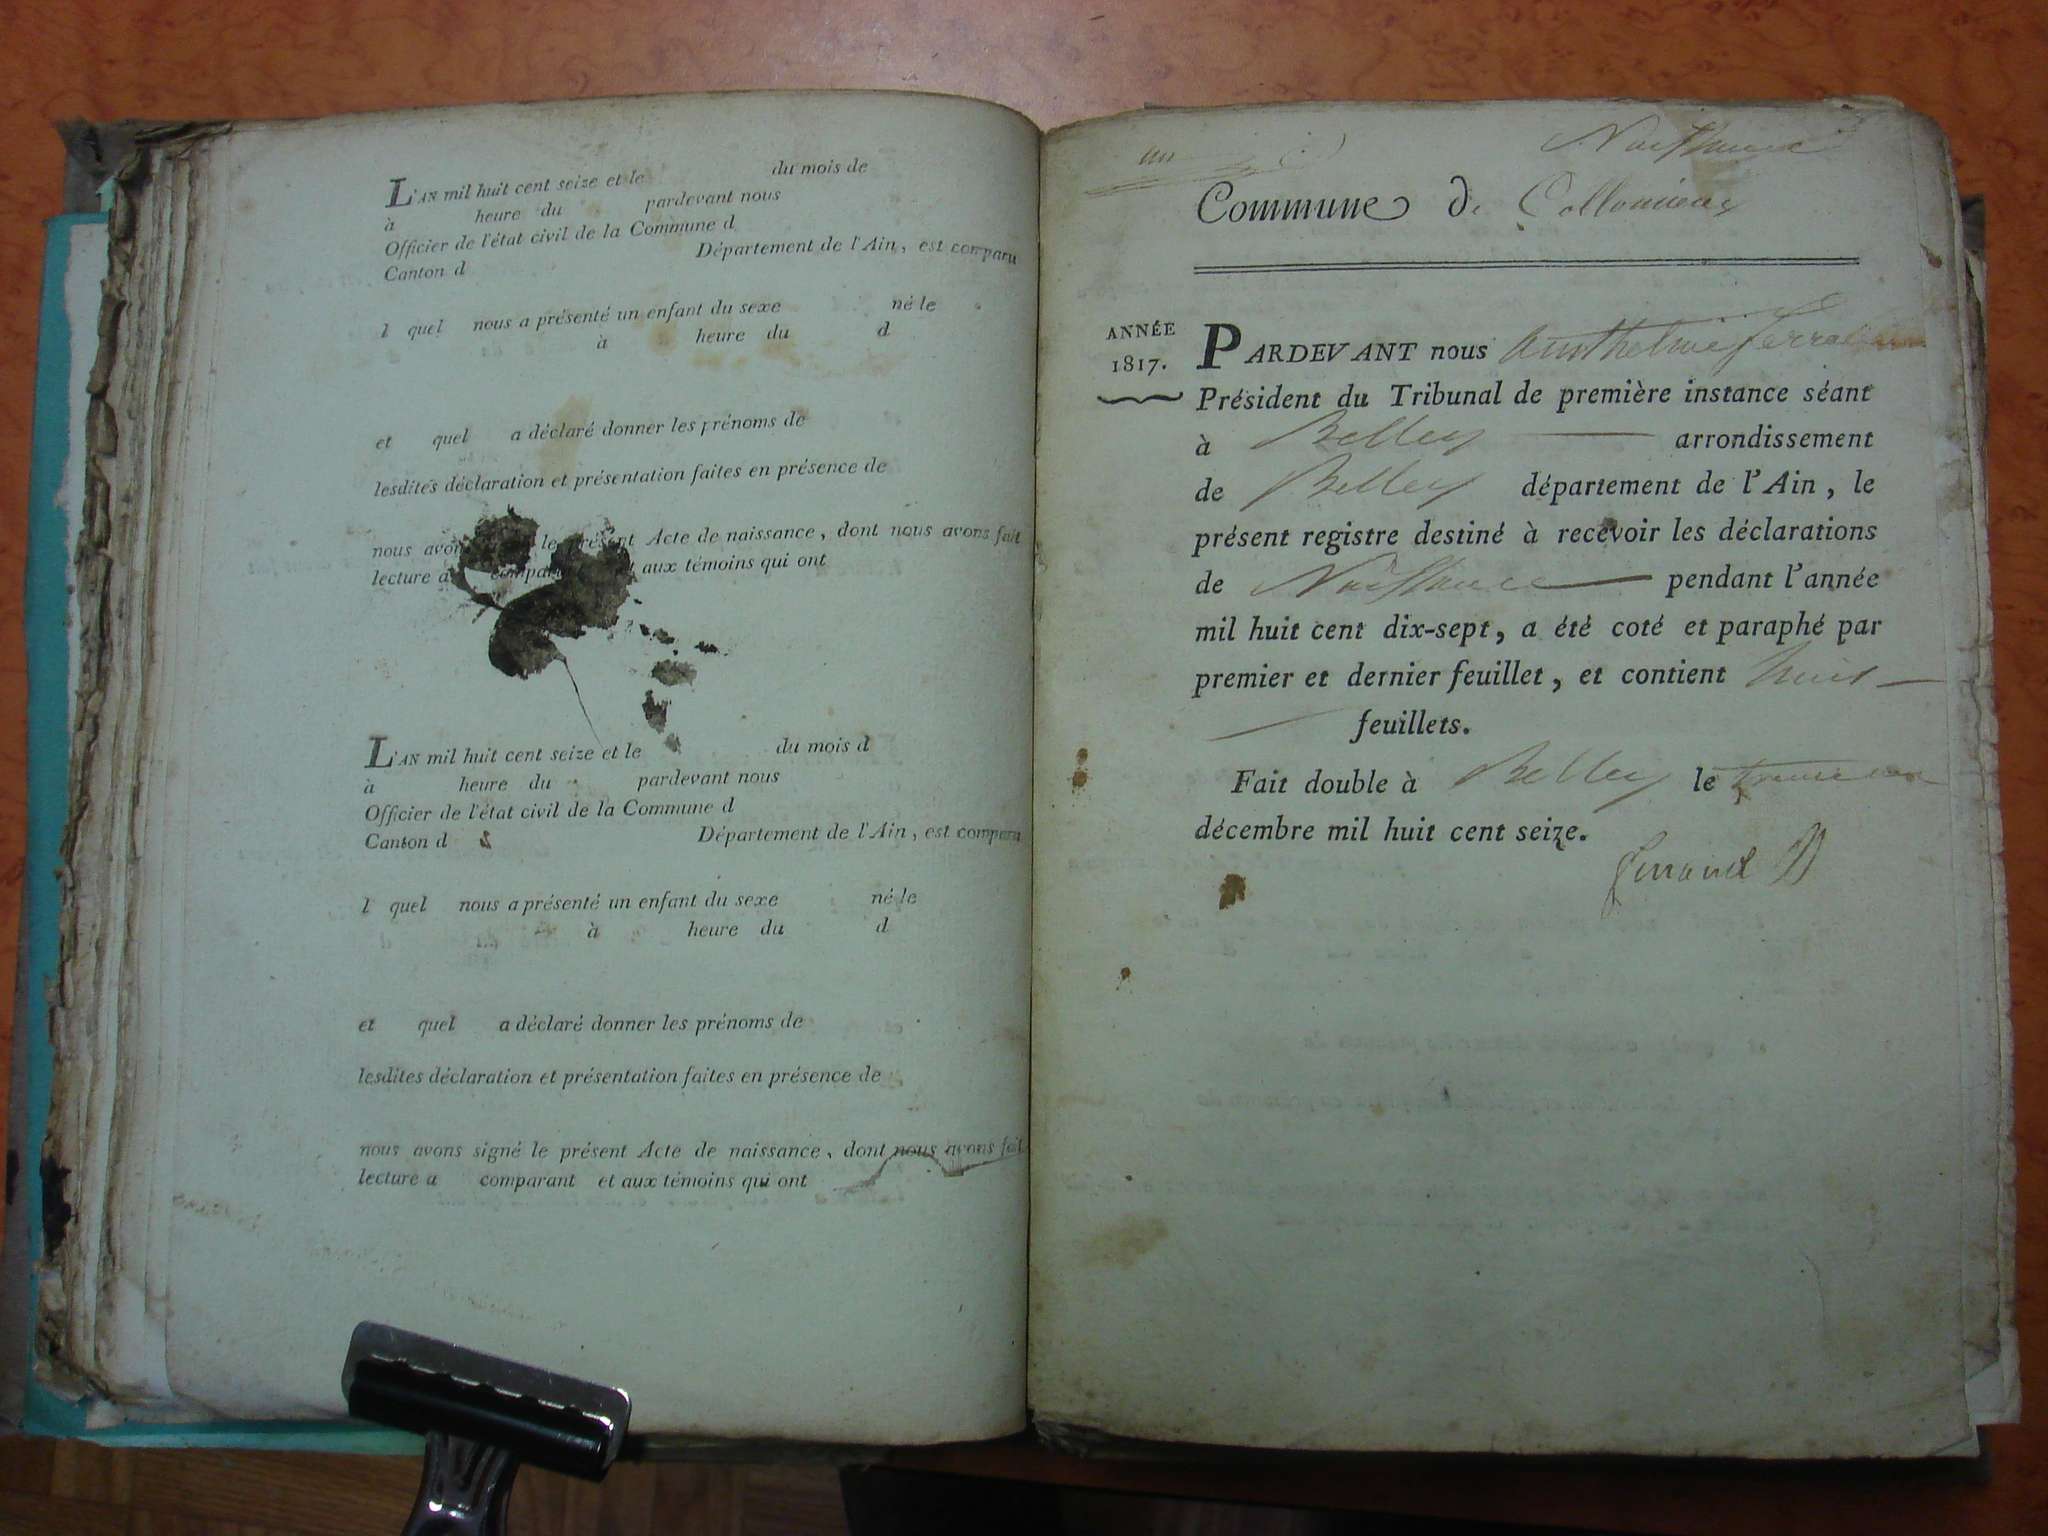 L'AN mil huit cent seize et le du mois de
à heure du pardevant nous
Officier de l'état civil de la Commune d
Canton d Département de l'Ain, est comparu
l quel nous a présenté un enfant du sexe né le
à heure du d
et quel a déclaré donner les prénoms de
lesdites déclaration et présentation faites en présence de
nous avons le présent Acte de naissance, dont nous avons fait
lecture a comparant aux témoins qui ont
L'AN mil huit cent seize et le du mois d
à heure du pardevant nous
Officier de l'état civil de la Commune d
Canton d Département de l'Ain, est comparu
l quel nous a présenté un enfant du sexe né le
à heure du d
et quel a déclaré donner les prénoms de
lesdites déclaration et présentation faites en présence de
nous avons signé le présent Acte de naissance, dont nous avons fait
lecture a comparant et aux témoins qui ont
un Naissance
Commune de
ANNÉE
1817.
PARDEVANT nous Anthelme
Président du Tribunal de première instance séant
à Belley arrondissement
de Belley département de l'Ain, le
présent registre destiné à recevoir les déclarations
de Naissance pendant l'année
mil huit cent dix-sept, a été coté et paraphé par
premier et dernier feuillet, et contient huit
feuillets.
Fait double à Belley le trente un
décembre mil huit cent seize.